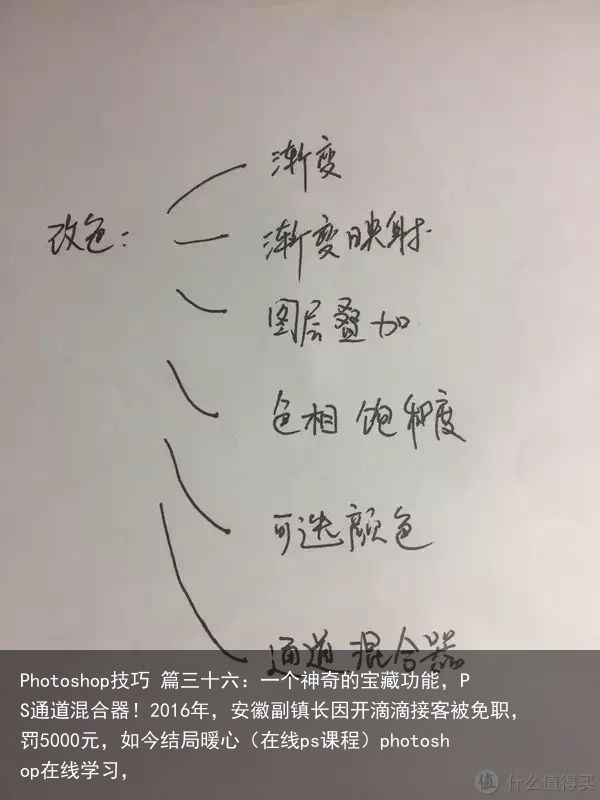 渐变
改色：
渐变映射
图层叠加
色相 饱和度
可选颜色
通道混合器
Photoshop技巧 篇三十六：一个神奇的宝藏功能，P
S通道混合器！2016年，安徽副镇长因开滴滴接客被免职，
罚5000元，如今结局暖心（在线ps课程）photosh
op在线学习，
值 什么值得买